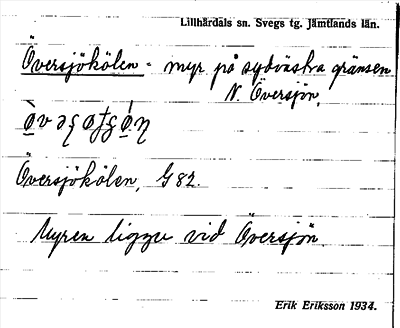 Lillhärdals sn. Svegs tg. Jämtlands län.
Översjökölen - myr på sydvästra gränsen
N. Översjön.
Översjökölen, G 82.
Myren ligger vid Översjön.
Erik Eriksson 1934.